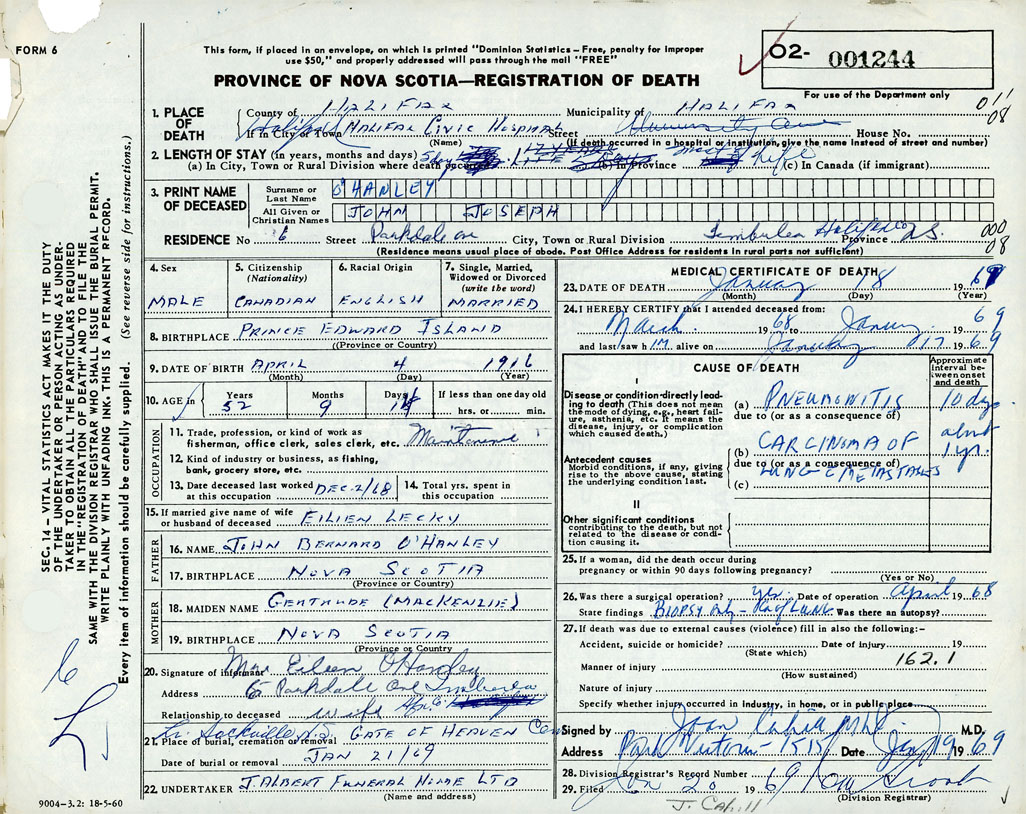 FORM 6
This form, if placed in an envelope, on which is printed "Dominion Statistics – Free, penalty for improper
use $50," and properly addressed will pass through the mail "FREE"
PROVINCE OF NOVA SCOTIA—REGISTRATION OF DEATH
O2- 001244
For use of the Department only
011
08
1. PLACE OF DEATH
County of HALIFAX Municipality of HALIFAX
If in City or Town HALIFAX CIVIC HOSPITAL Street University Ave House No.
(Name) (If death occurred in a hospital or institution, give the name instead of street and number)
2. LENGTH OF STAY (in years, months and days)
(a) In City, Town or Rural Division where death occurred LIFE (b) In Province most of life (c) In Canada (if immigrant)
3. PRINT NAME OF DECEASED
Surname or Last Name O'HANLEY
All Given or Christian Names JOHN JOSEPH
RESIDENCE No 6 Street Parkdale Ave City, Town or Rural Division Timberlea Halifax Co Province N.S.
000
08
(Residence means usual place of abode. Post Office Address for residents in rural parts not sufficient)
4. Sex MALE
5. Citizenship (Nationality) CANADIAN
6. Racial Origin ENGLISH
7. Single, Married, Widowed or Divorced (write the word) MARRIED
8. BIRTHPLACE PRINCE EDWARD ISLAND
(Province or Country)
9. DATE OF BIRTH APRIL 4 1916
(Month) (Day) (Year)
10. AGE in Years 52 Months 9 Days 14 If less than one day old hrs. or min.
OCCUPATION
11. Trade, profession, or kind of work as fisherman, office clerk, sales clerk, etc. Maintenance
12. Kind of industry or business, as fishing, bank, grocery store, etc.
13. Date deceased last worked at this occupation DEC-2/68
14. Total yrs. spent in this occupation
15. If married give name of wife or husband of deceased EILIEN LECKY
FATHER
16. NAME JOHN BERNARD O'HANLEY
17. BIRTHPLACE NOVA SCOTIA
(Province or Country)
MOTHER
18. MAIDEN NAME GERTRUDE (MACKENZIE)
19. BIRTHPLACE NOVA SCOTIA
(Province or Country
20. Signature of informant Mrs Eileen O'Hanley
Address 6 Parkdale Ave Timberlea
Hfx. Co.
Relationship to deceased wife
Lr. Sackville N.S.
21. Place of burial, cremation or removal GATE OF HEAVEN Cem
Date of burial or removal JAN 21/69
22. UNDERTAKER J. ALBERT FUNERAL HOME LTD
(Name and address)
MEDICAL CERTIFICATE OF DEATH
23. DATE OF DEATH January 18 1969
(Month) (Day) (Year)
24. I HEREBY CERTIFY that I attended deceased from:
March 1968 to January 69
and last saw him alive on January 17 1969
CAUSE OF DEATH
Approximate interval between onset and death
I
Disease or condition directly leading to death (This does not mean the mode of dying, e.g., heart failure, asthenia, etc. It means the disease, injury, or complication which caused death.)
(a) PNEUMONITIS 10 days
due to (or as a consequence of)
Antecedent causes
Morbid conditions, if any, giving rise to the above cause, stating the underlying condition last.
(b) CARCINOMA OF about 1 yr.
due to (or as a consequence of)
LUNG C METASTASES
(c)
II
Other significant conditions contributing to the death, but not related to the disease or condition causing it.
25. If a woman, did the death occur during pregnancy or within 90 days following pregnancy?
(Yes or No)
26. Was there a surgical operation? yes Date of operation April 1968
State findings BIOPSY only - Ca of LUNG Was there an autopsy?
27. If death was due to external causes (violence) fill in also the following:-
Accident, suicide or homicide? Date of injury 19
(State which)
162.1
Manner of injury
(How sustained)
Nature of injury
Specify whether injury occurred in industry, in home, or in public place
Signed by Joan M.D.
Address Park Victoria - Date Jan 19 1969
28. Division Registrar's Record Number 69
29. Filed Jan 20 1969
(Division Registrar)
J. Cahill
9004-3.2: 18-5-60
SEC. 14 – VITAL STATISTICS ACT MAKES IT THE DUTY
OF THE UNDERTAKER OR PERSON ACTING AS UNDER-
TAKER TO OBTAIN ALL THE PARTICULARS REQUIRED
IN THE "REGISTRATION OF DEATH" AND TO FILE THE
SAME WITH THE DIVISION REGISTRAR WHO SHALL ISSUE THE BURIAL PERMIT.
WRITE PLAINLY WITH UNFADING INK. THIS IS A PERMANENT RECORD.
Every item of information should be carefully supplied. (See reverse side for instructions.)